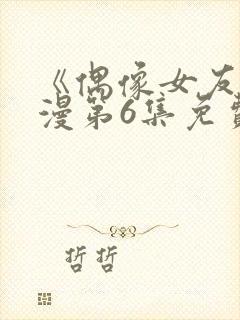 《偶像女友
漫第6集免费
哲哲